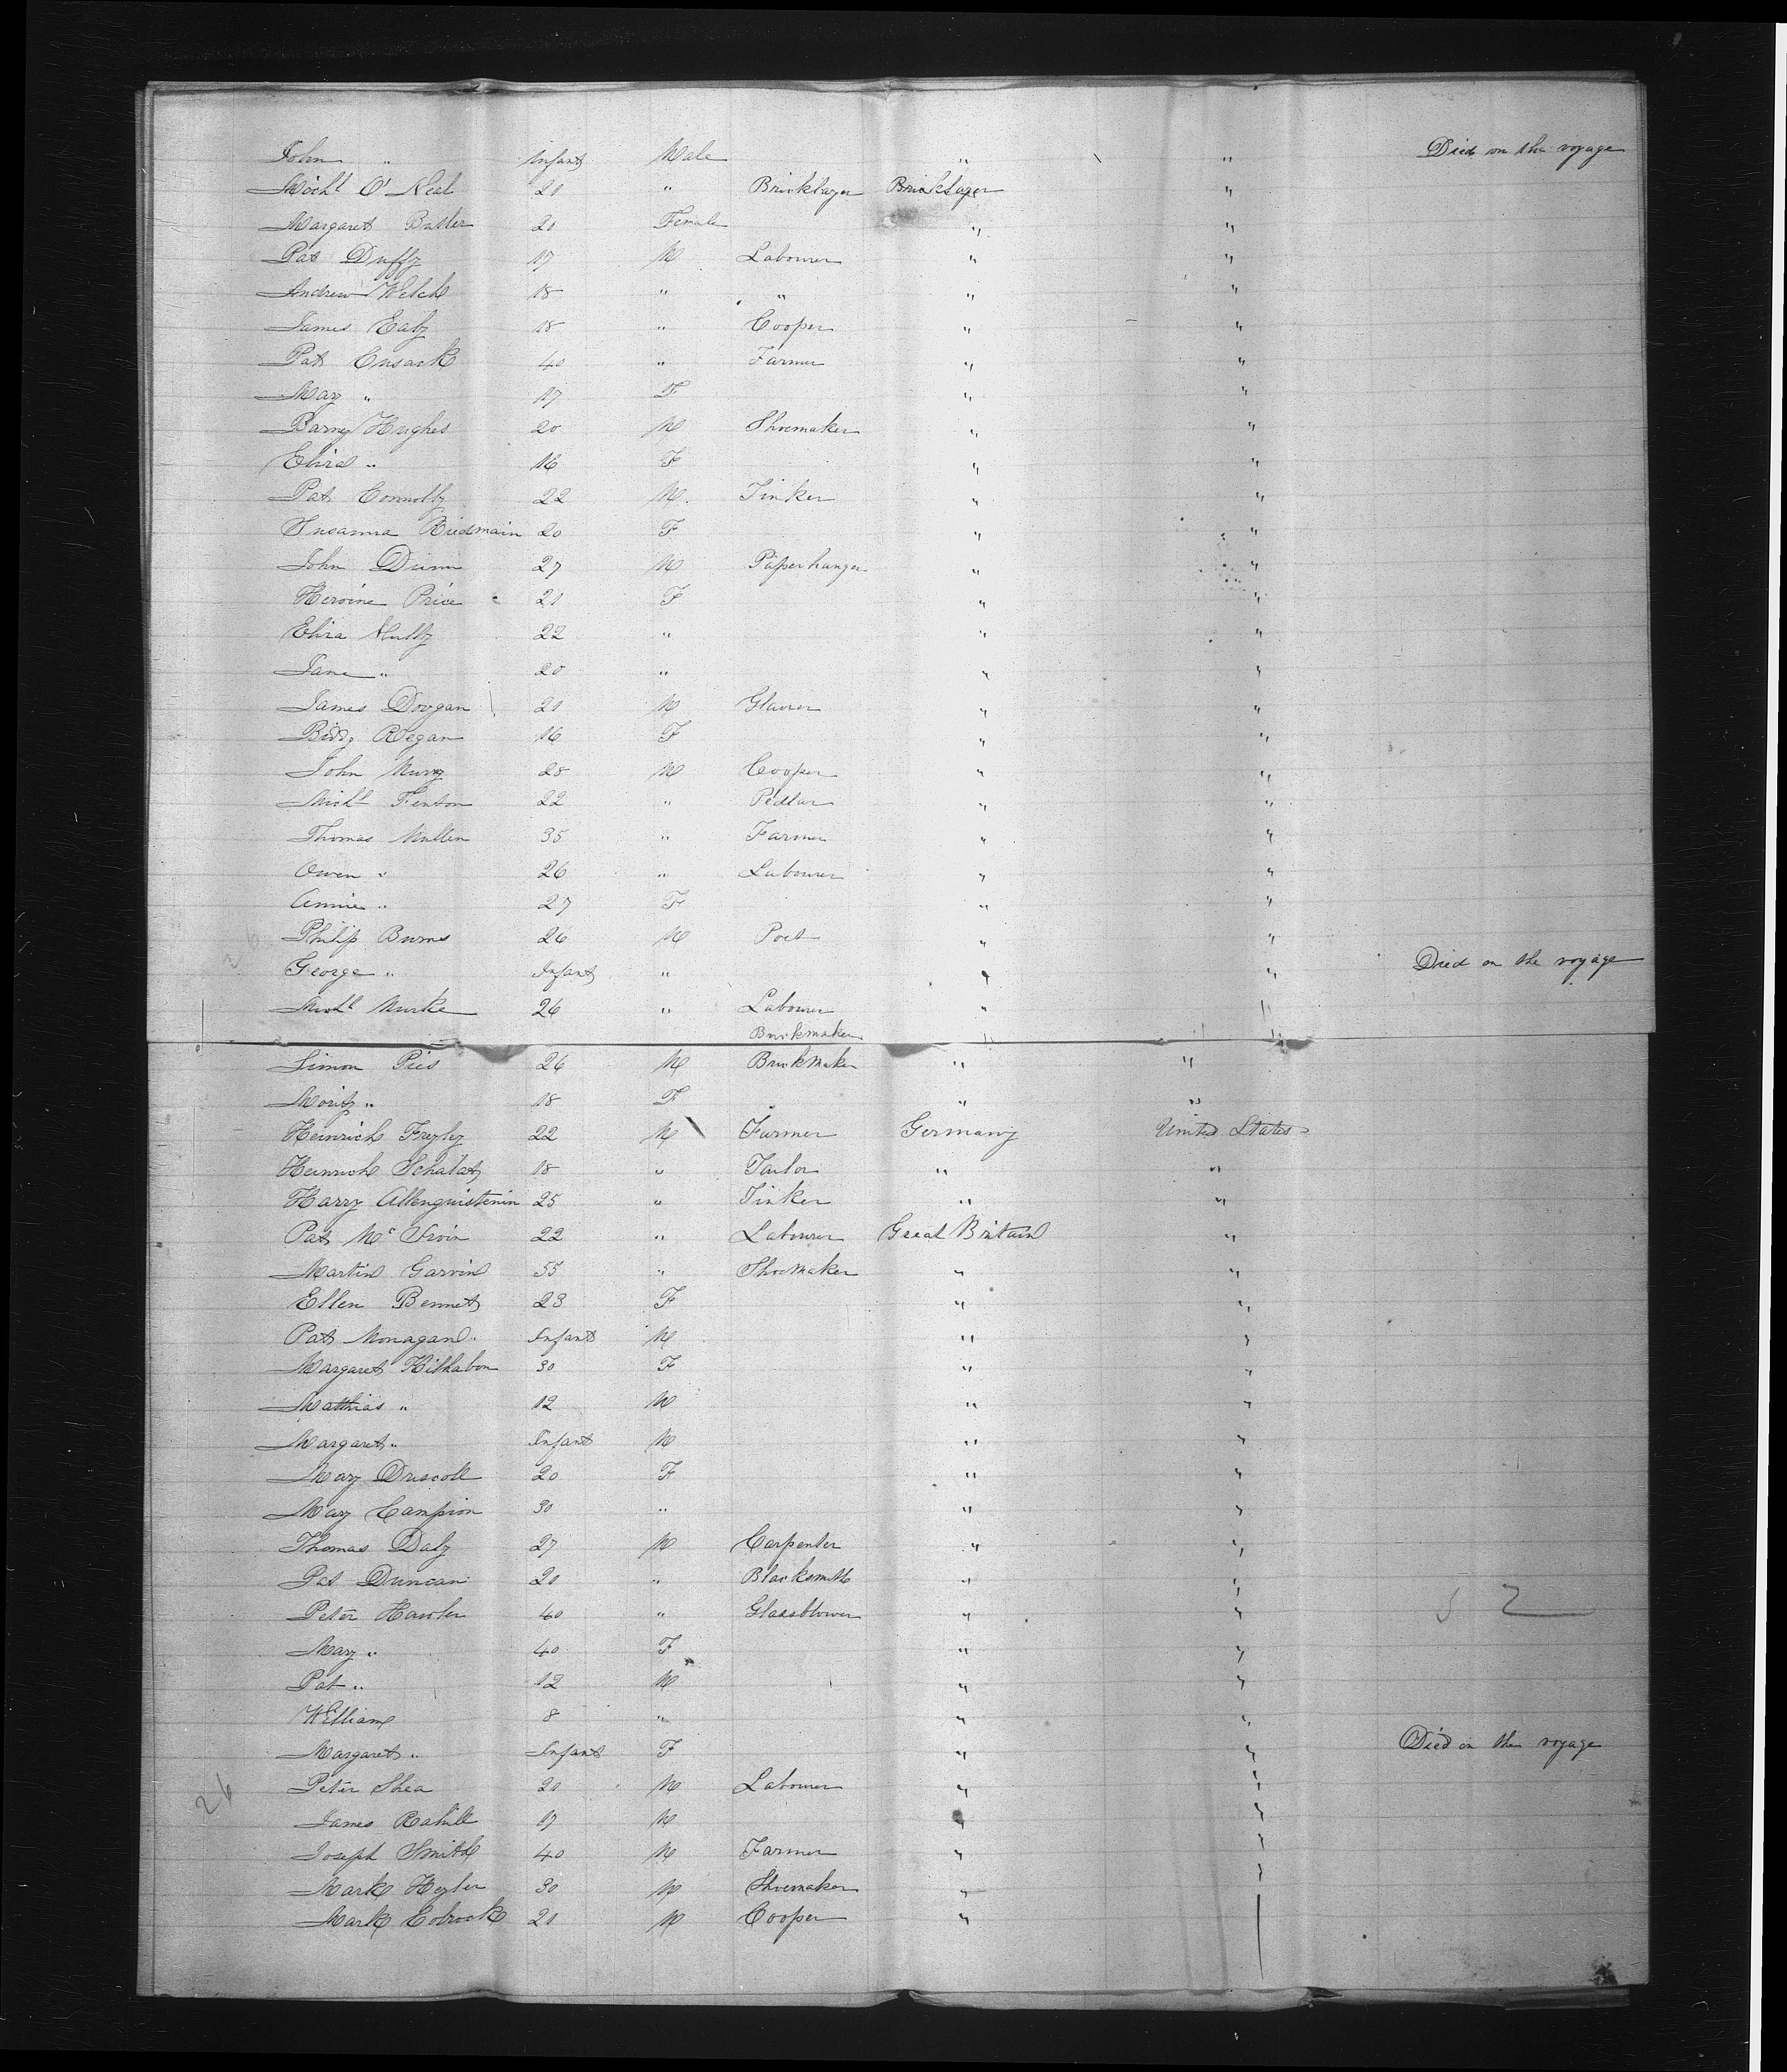 John " Infant Male " " Died on the voyage
Michl O'Neal 20 " Bricklayer Bricklayer "
Margaret Butler 20 Female " "
Pat Duffy 17 M Labourer " "
Andrew Welch 18 " " " "
James Ealy 18 " Cooper " "
Pat Cusack 40 " Farmer " "
Mary " 17 F " "
Barney Hughes 20 M Shoemaker " "
Eliza " 16 F " "
Pat Connolly 22 M. Tinker " "
Susanna Riedmain 20 F " "
John Dunn 27 M Paperhanger " "
Heroine Price 21 F " "
Eliza Nully 22 " " "
Jane " 20 " " "
James Dovgan 21 M Glazier " "
Biddy Regan 16 F " "
John Murry 28 M Cooper " "
Michl Fenton 22 " Pedlar " "
Thomas Mullen 35 " Farmer " "
Owen " 26 " Labourer " "
Annie " 27 F " "
Philip Burns 26 M Poet " "
George " Infant " " " Died on the voyage
Michl Murke 26 " Labourer " "
Brickmaker
Simon Pies 26 M Brickmaker " "
Moritz " 18 F " " "
Heinrich Fregley 22 M Farmer Germany United States
Heinrich Schalat 18 " Tailor " "
Harry 25 " Tinker " "
Pat Mc 22 " Labourer Great Britain "
Martin Garvin 55 " Shoemaker " "
Ellen Bennet 23 F " "
Pat Monagand " Infant M " "
Margaret 30 F " "
Matthias " 12 M " "
Margaret " Infant M " "
Mary Driscoll 20 F " "
Mary Campion 30 " " "
Thomas Daly 27 M Carpenter " "
Pat Duncan 20 " Blacksmith " "
Peter Hawler 40 " Glassblower " "
Mary " 40 F " "
Pat " 12 M " "
William 8 " " "
Margaret " Infant F " " Died on the voyage
26
Peter Shea 20 M Labourer " "
James Rahill 17 M " "
Joseph Smith 40 M Farmer " "
Mark Heyler 30 M Shoemaker " "
Mark Cobrock 21 M Cooper "